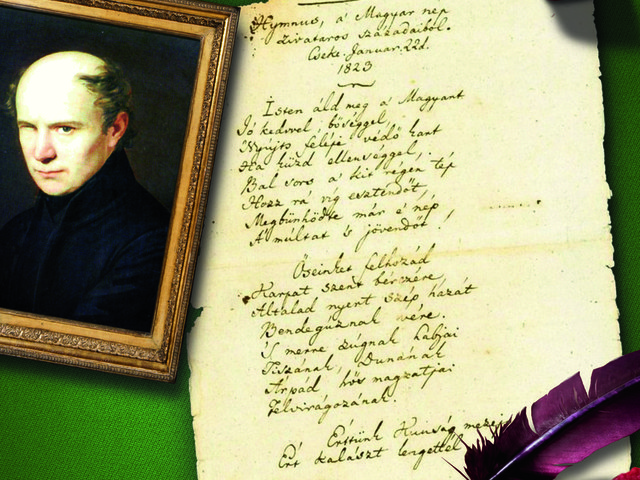 Hymnus, a' Magyar nép
zivataros századaiból.
Cseke. Januar. 22d.
1823
Isten áld meg a' Magyart
Jó kedvvel, bőséggel,
Nyujts feléje védő kart
Ha küzd ellenséggel,
Bal sors a' kit régen tép
Hozz rá víg esztendőt,
Megbünhödte már e' nép
A' multat 's jövendőt!
Őseinket felhozád
Kárpát szent bérczére,
Általad nyert szép hazát
Bendegúznak vére.
'S merre zúgnak habjai
Tiszának, Dunának
Árpád hős magzatjai
Felvirágozának.
Értünk Kunság mezein
Ért kalászt lengettél